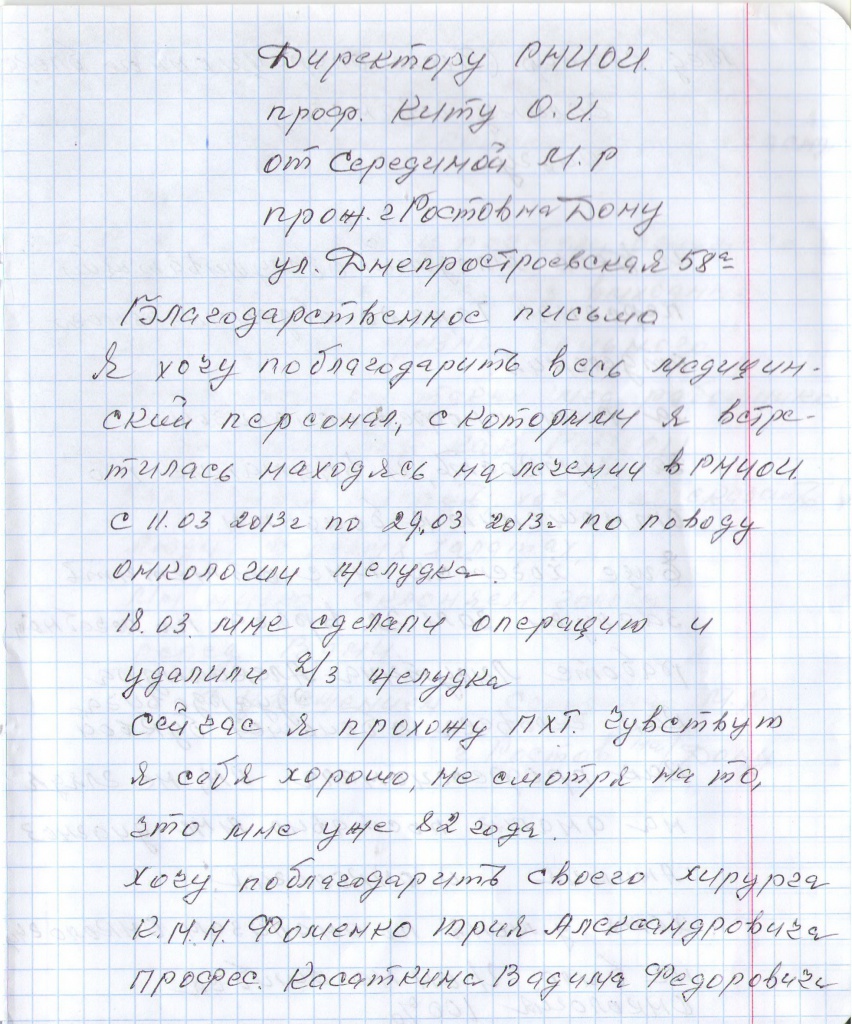 Директору РНИОИ.
проф. Киту О.И.
от Серединой М.Р
прож. г Ростов на Дону
ул. Днепростроевская 58а
Благодарственное письмо
Я хочу поблагодарить весь медицин-
ский персонал, с которыми я встре-
тилась находясь на лечении в РНИОИ
с 11.03 2013г по 29.03. 2013г по поводу
онкологии желудка.
18.03. мне сделали операцию и
удалили 2/3 желудка
Сейчас я прохожу ПХТ. Чувствую
я себя хорошо, не смотря на то,
что мне уже 82 года.
Хочу поблагодарить своего хирурга
К.М.Н. Фоменко Юрия Александровича
Професс. Касаткина Вадима Федоровича